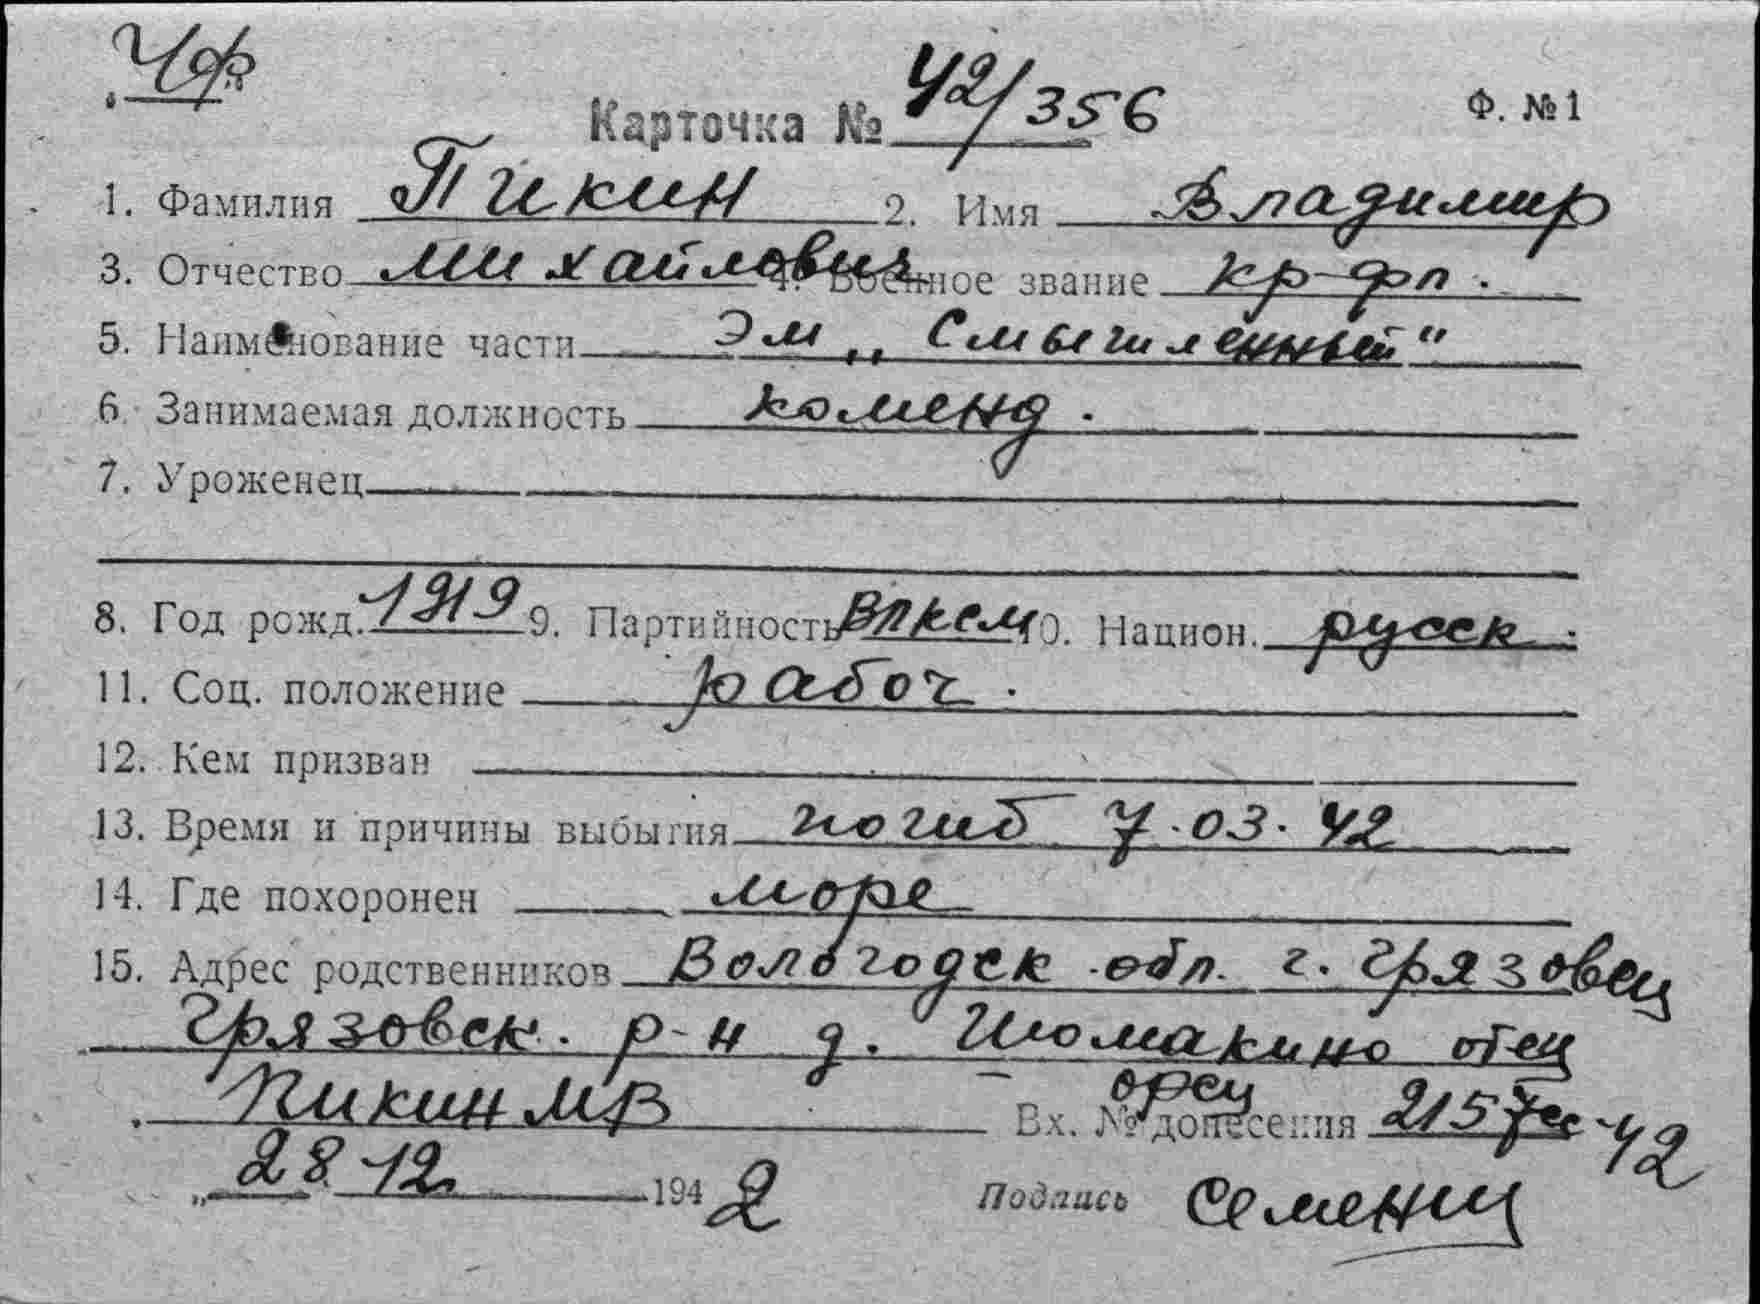 ЧФ
Карточка № 42/356 Ф. № 1
1. Фамилия Пикин 2. Имя Владимир
3. Отчество Михайлович 4. Военное звание кр-фл.
5. Наименование части эм „Смышленный"
6. Занимаемая должность коменд.
7. Уроженец
8. Год рожд. 1919 9. Партийность ВЛКСМ 10. Национ. русск.
11. Соц. положение рабоч.
12. Кем призван
13. Время и причины выбытия погиб 7.03.42
14. Где похоронен море
15. Адрес родственников Вологодск обл. г. Грязовец
Грязовск. р-н д. Шомакино отец
Пикин МВ Вх. № донесения 2157сс-42
„28.12 1942 Подпись Семенц